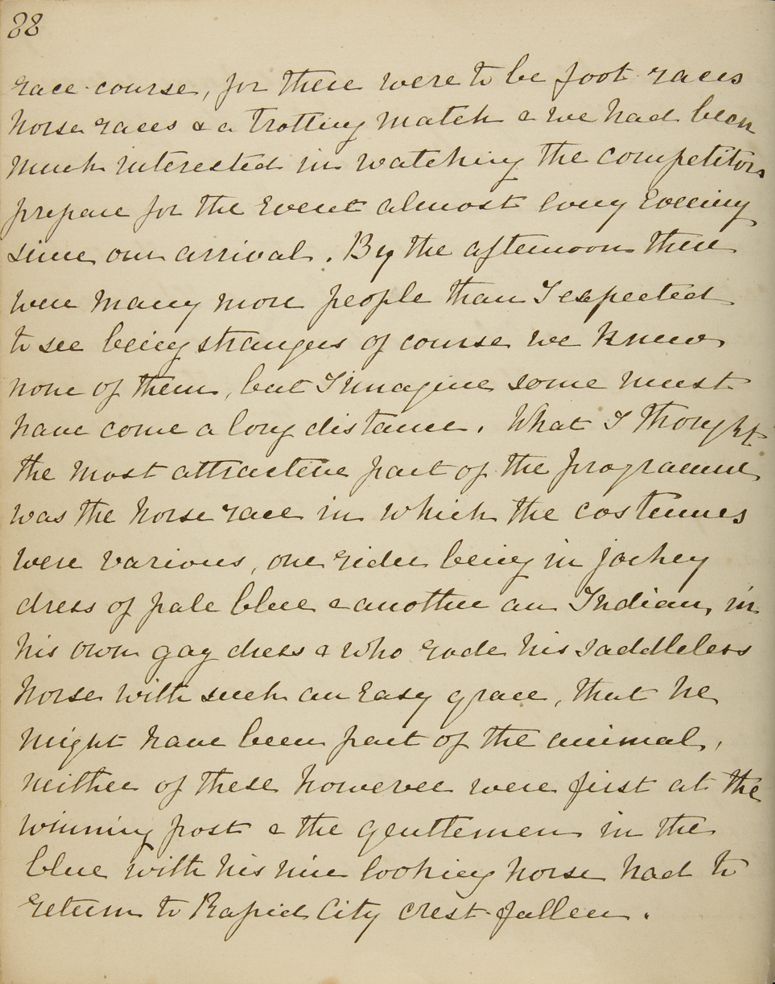 88
race-course, for there were to be foot races
horse races & a trotting match & we had been
much interested in watching the competitors
prepare for the event almost every evening
since our arrival. By the afternoon there
were many more people than I expected
to see being strangers of course we knew
none of them, but I imagine some must
have come a long distance. What I thought
the most attractive part of the programme
was the horse race in which the costumes
were various, one rider being in jockey
dress of pale blue & another an Indian, in
his own gay dress & who rode his saddleless
horse with such an easy grace, that he
might have been part of the animal,
neither of these however were first at the
winning post & the gentlemen in the
blue with his nice looking horse had to
return to Rapid City crest-fallen.